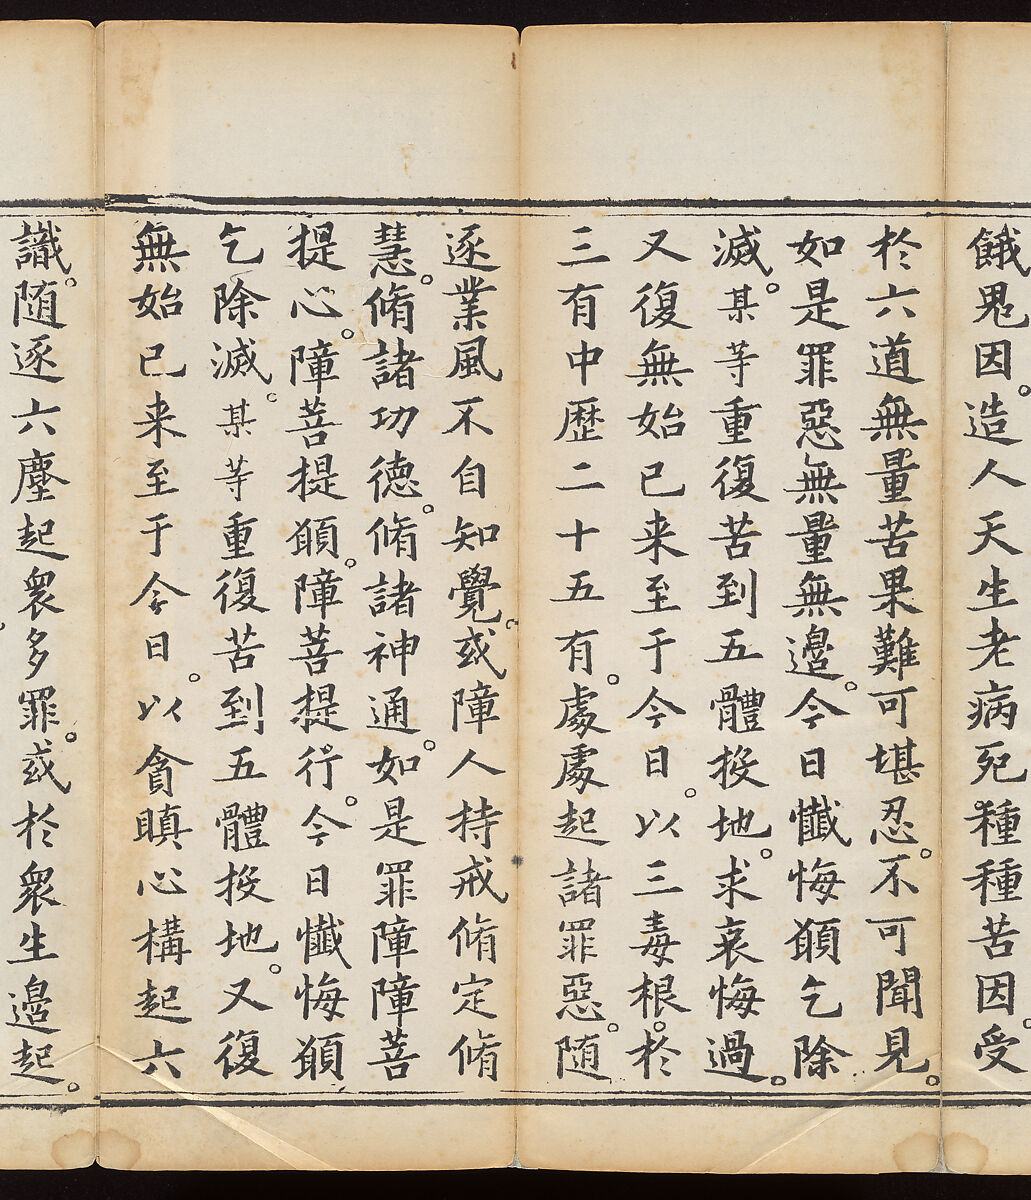 餓鬼因。造人天生老病死種種苦因。受
於六道無量苦果難可堪忍。不可聞見。
如是罪惡無量無邊。今日懺悔願乞除
滅。某等重復苦到五體投地。求哀悔過。
又復無始已来至于今日。以三毒根。於
三有中歷二十五有。處處起諸罪惡。随
逐業風不自知覺。或障人持戒脩定脩
慧。脩諸功德。脩諸神通。如是罪障障菩
提心。障菩提願。障菩提行。今日懺悔願
乞除滅。某等重復苦到五體投地。又復
無始已来至于今日。以貪瞋心構起六
識。随逐六塵起衆多罪。或於衆生邊起。